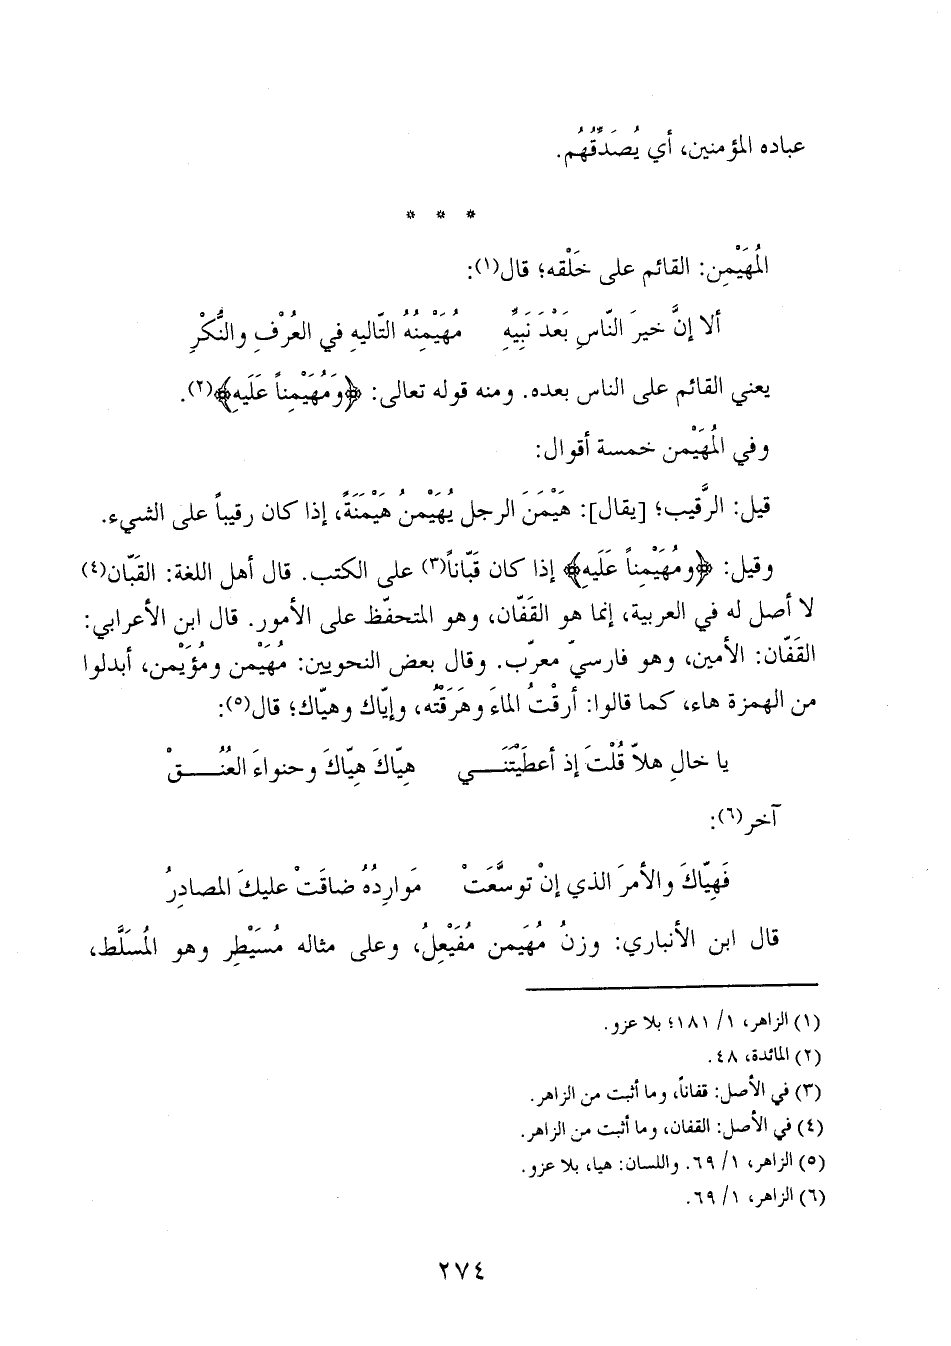 عباده المؤمنين، أي يُصَدِّقُهُم.
* * *
المُهَيْمِن: القائم على خَلْقه؛ قال(١):
ألا إنَّ خيرَ النّاسِ بَعْدَ نَبِيِّهِ مُهَيْمِنُهُ التّاليهِ في العُرْفِ والنُّكْرِ
يعني القائم على الناس بعده. ومنه قوله تعالى: ﴿وَمُهَيْمِناً عَلَيهِ﴾(٢).
وفي المُهَيْمن خمسة أقوال:
قيل: الرَّقيب؛ [يقال]: هَيْمَنَ الرجل يُهَيْمنُ هَيْمَنَةً، إذا كان رقيباً على الشيء.
وقيل: ﴿ومُهَيْمِناً عَلَيهِ﴾ إذا كان قَبّاناً(٣) على الكتب. قال أهل اللغة: القَبّان(٤)
لا أصل له في العربية، إنما هو القَفّان، وهو المتحفّظ على الأمور. قال ابن الأعرابي:
القَفّان: الأمين، وهو فارسيّ معرّب. وقال بعض النحويين: مُهَيْمن ومُؤَيْمن، أبدلوا
من الهمزة هاء، كما قالوا: أرقْتُ الماءَ وهَرَقْتُه، وإيّاك وهيّاك؛ قال(٥):
يا خالِ هلاّ قُلْتَ إذ أعطَيْتَنَـــي هِيّاكَ هِيّاكَ وحنواءَ العُنُـــقْ
آخر(٦):
فَهِيّاكَ والأمرَ الذي إنْ توسَّعَتْ مَوارِدُهُ ضاقَتْ عليكَ المصادِرُ
قال ابن الأنباري: وزنُ مُهَيمن مُفَيْعِلُ، وعلى مثاله مُسَيْطِر وهو المُسَلَّط،
(١) الزاهر، ١/ ١٨١؛ بلا عزو.
(٢) المائدة، ٤٨.
(٣) في الأصل: قفاناً، وما أثبت من الزاهر.
(٤) في الأصل: القفان، وما أثبت من الزاهر.
(٥) الزاهر، ١/ ٦٩. واللسان: هيا، بلا عزو.
(٦) الزاهر، ١/ ٦٩.
٢٧٤